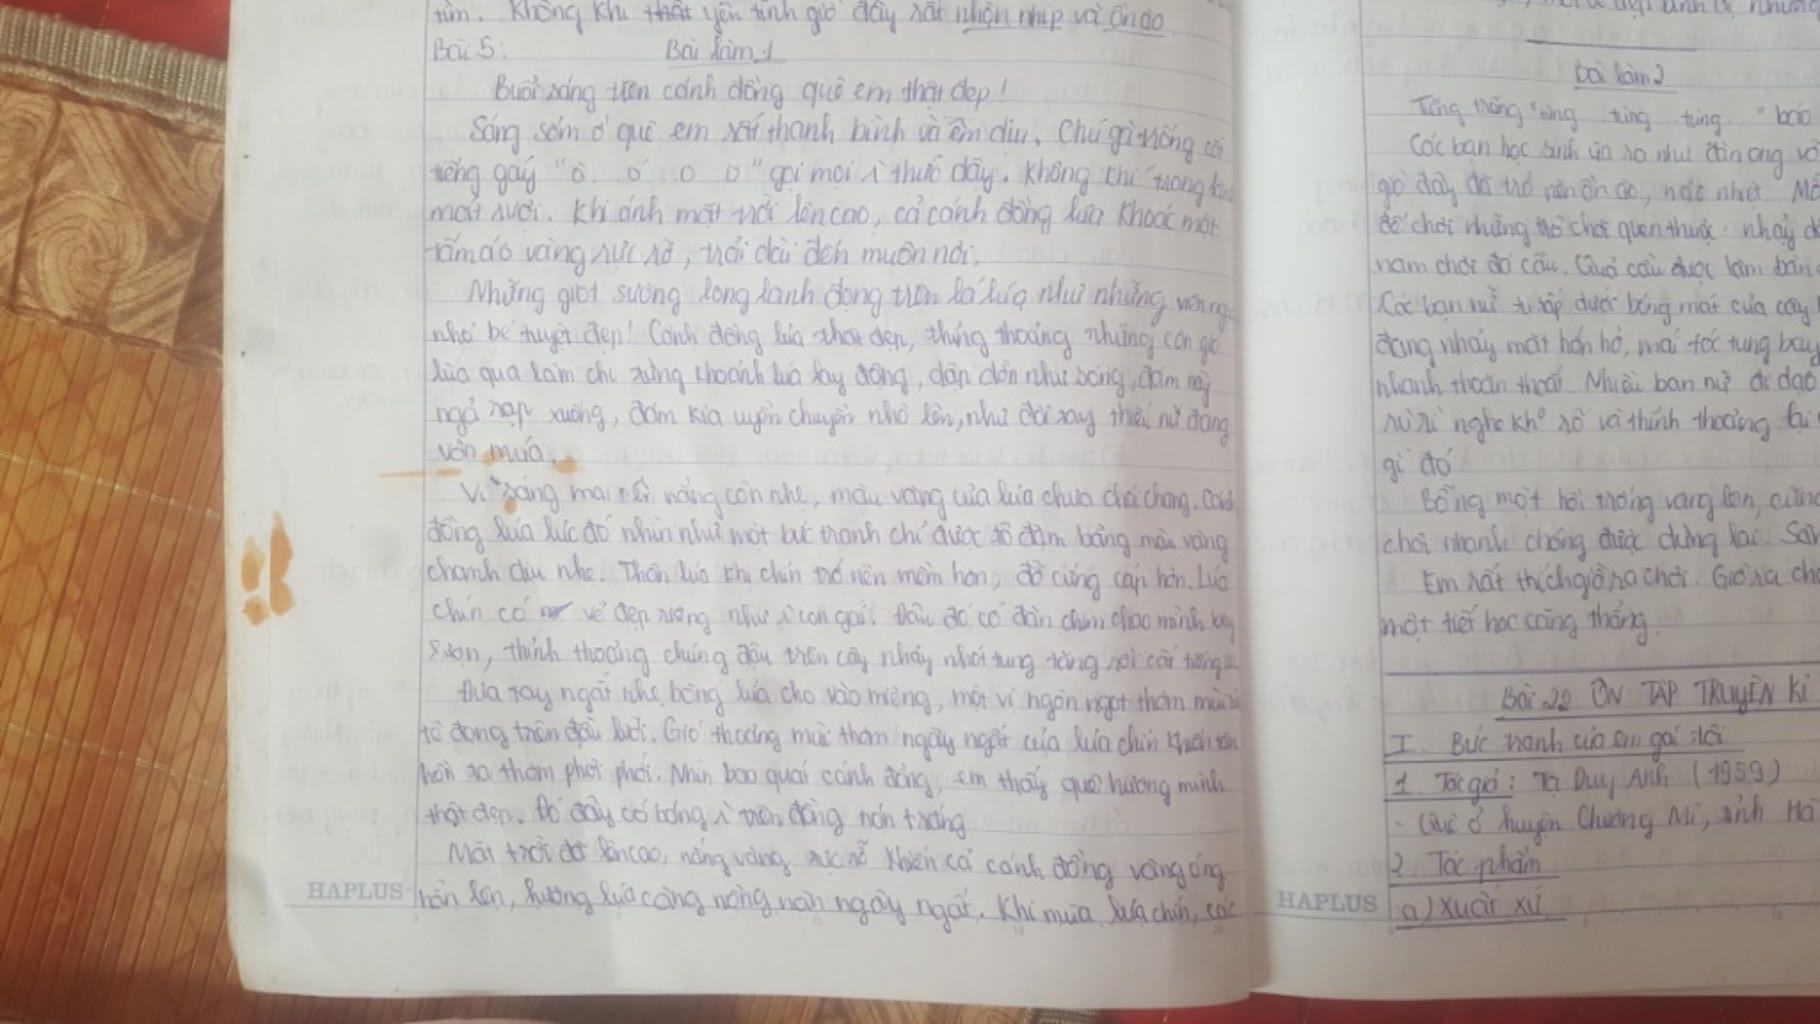 tìm. Không khí thật yên tĩnh giờ đây rất nhộn nhịp và ồn ào
Bài 5: Bài làm 1
Buổi sáng trên cánh đồng quê em thật đẹp!
Sáng sớm ở quê em rất thanh bình và êm dịu. Chú gà trống cất
tiếng gáy "ò ó o o" gọi mọi người thức dậy. Không khí trong lành
mát rượi. Khi ánh mặt trời lên cao, cả cánh đồng lúa khoác một
tấm áo vàng rực rỡ, trải dài đến muôn nơi.
Những giọt sương long lanh đọng trên lá lúa như những viên
nhỏ bé tuyệt đẹp! Cánh đồng lúa thật đẹp, thỉnh thoảng những cơn gió
lùa qua làm cho từng khoảnh lúa lay động, dập dờn như sóng, đám này
ngả rạp xuống, đám kia uyển chuyển nhô lên, như đôi tay thiếu nữ đang
vờn múa.
Vì sáng mai nên nắng còn nhẹ, màu vàng của lúa chưa chói chang. Cánh
đồng lúa lúc đó nhìn như một bức tranh chỉ được tô đậm bằng màu vàng
chanh dịu nhẹ. Thân lúa khi chín trở nên mềm hơn, đỡ cứng cáp hơn. Lúa
chín có vẻ đẹp riêng như con gái. Đâu đó có đàn chim chao mình bay
lượn, thỉnh thoảng chúng đậu trên cây nhảy nhót tung tăng rồi cất tiếng
Đưa tay ngắt nhẹ bông lúa cho vào miệng, một vị ngòn ngọt thơm mùi
tê đọng trên đầu lưỡi. Gió thoảng mùi thơm ngây ngất của lúa chín khiến tâm
hồn ta thơm phơi phới. Nhìn bao quát cánh đồng, em thấy quê hương mình
thật đẹp. Đó đây có bóng người trên đồng nón trắng
Mặt trời đã lên cao, nắng vàng rực rỡ khiến cả cánh đồng vàng óng
hẳn lên, hương lúa càng nồng nàn ngây ngất. Khi mùa lúa chín, các
HAPLUS
bài làm 2
Tiếng trống "tùng tùng tùng" báo
Các bạn học sinh ùa ra như đàn ong vỡ
giờ đây đã trở nên ồn ào, náo nhiệt.
để chơi những trò chơi quen thuộc: nhảy d
nam chơi đá cầu. Quả cầu được làm bằng
Các bạn nữ tụ tập dưới bóng mát của cây
đang nhảy mắt hớn hở, mái tóc tung bay
nhanh thoăn thoắt. Nhiều bạn nữ đi dạo
rủ rỉ nghe không rõ và thỉnh thoảng lại
gì đó
Bỗng một hồi trống vang lên, cũng
chơi nhanh chóng được dừng lại. San
Em rất thích giờ ra chơi. Giờ ra chơ
một tiết học căng thẳng.
Bài 22 ÔN TẬP TRUYỆN KÍ
I. Bức tranh của em gái tôi
1. Tác giả: Tạ Duy Anh (1959)
- Quê ở huyện Chương Mĩ, tỉnh Hà
2. Tác phẩm
a) Xuất xứ
HAPLUS